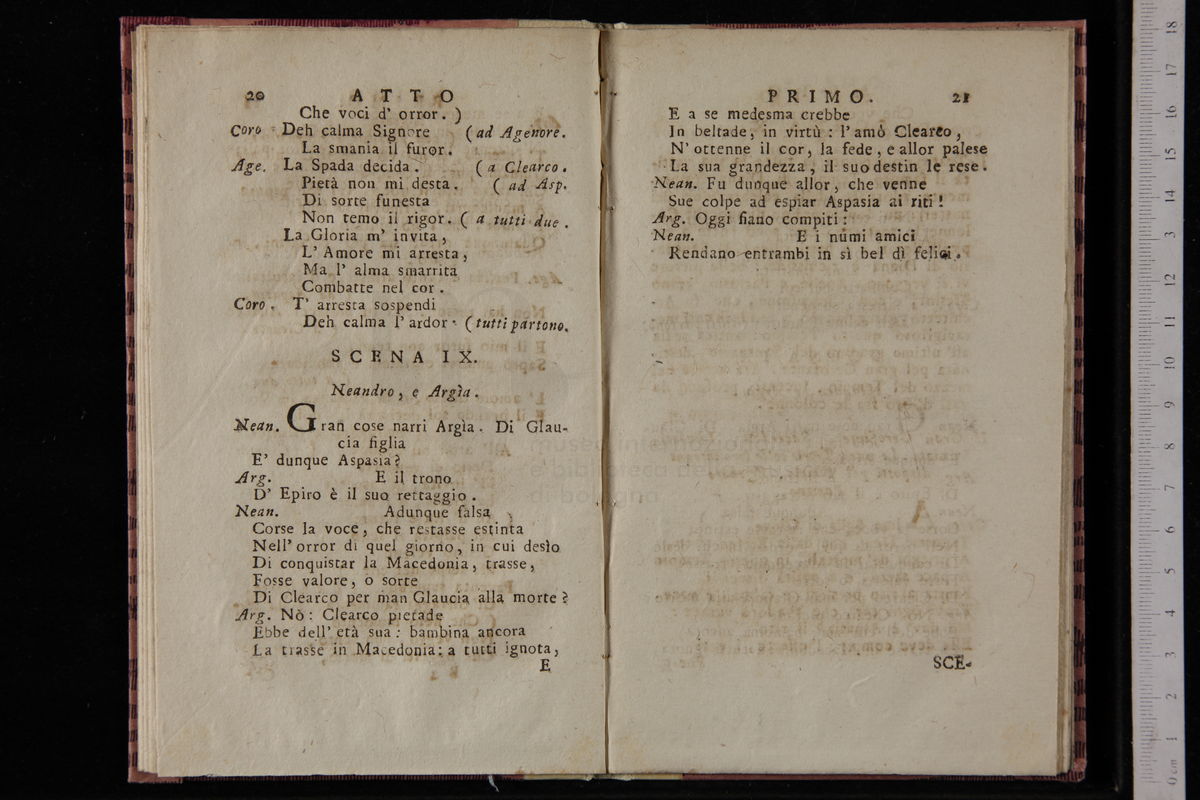 20 ATTO
Che voci d' orror. )
Coro Deh calma Signore ( ad Agenore.
La smania il furor.
Age. La Spada decida. ( a Clearco.
Pietà non mi desta. ( ad Asp.
Di sorte funesta
Non temo il rigor. ( a tutti due.
La Gloria m' invita,
L' Amore mi arresta,
Ma l' alma smarrita
Combatte nel cor.
Coro. T' arresta sospendi
Deh calma l' ardor. ( tutti partono.
SCENA IX.
Neandro, e Argìa.
Nean. Gran cose narri Argìa. Di Glau-
cia figlia
E' dunque Aspasia?
Arg. E il trono
D' Epiro è il suo rettaggio.
Nean. Adunque falsa
Corse la voce, che restasse estinta
Nell' orror di quel giorno, in cui desìo
Di conquistar la Macedonia, trasse,
Fosse valore, o sorte
Di Clearco per man Glaucia alla morte?
Arg. Nò: Clearco pietade
Ebbe dell' età sua: bambina ancora
La trasse in Macedonia: a tutti ignota,
E
PRIMO. 21
E a se medesma crebbe
In beltade, in virtù: l' amò Clearco,
N' ottenne il cor, la fede, e allor palese
La sua grandezza, il suo destin le rese.
Nean. Fu dunque allor, che venne
Sue colpe ad espiar Aspasia ai riti!
Arg. Oggi fiano compiti:
Nean. E i numi amici
Rendano entrambi in sì bel dì felici.
SCE-